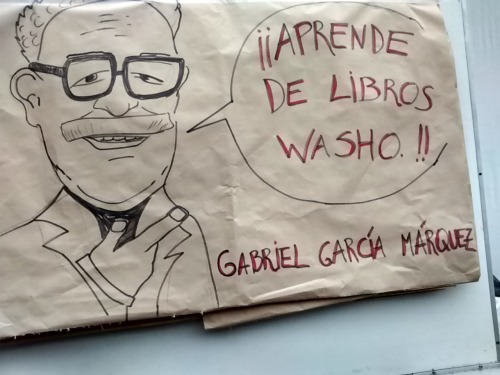 ¡¡APRENDE
DE LIBROS
WASHO.!!
GABRIEL GARCÍA MÁRQUEZ